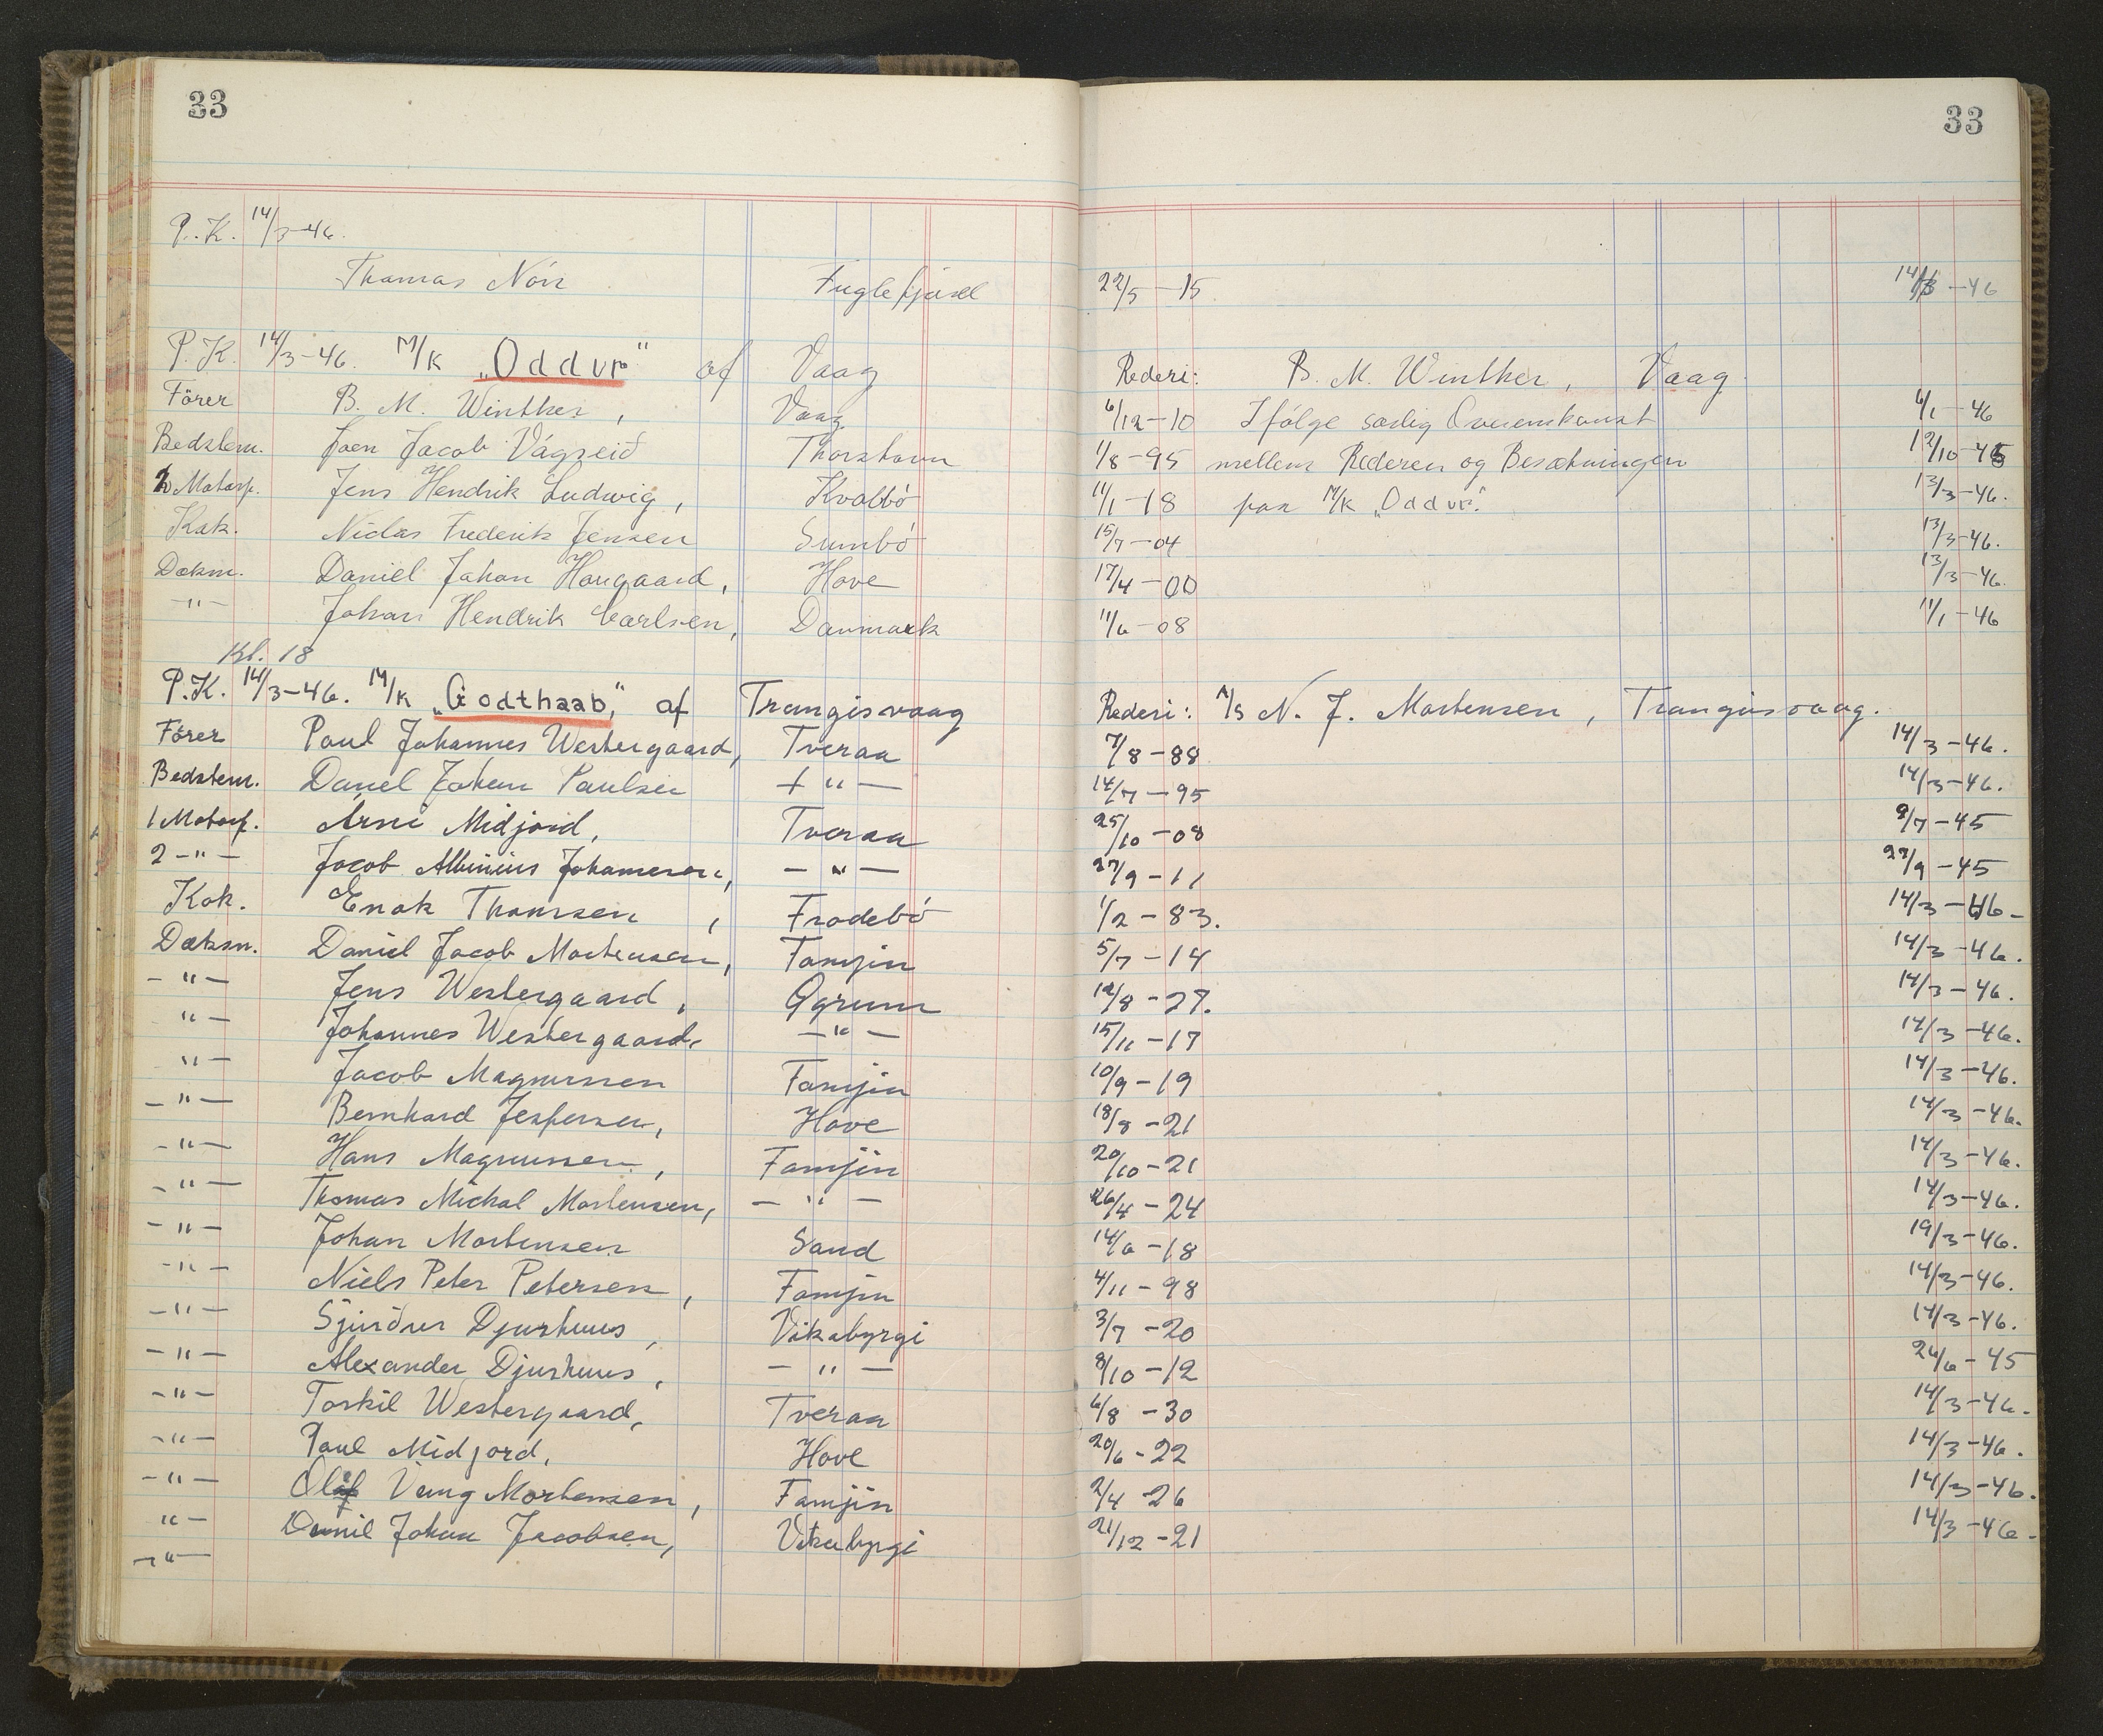 33
33
P.K. 14/3-46.
Thomas Nón Fuglefjord 22/5 -15 14/3 -46
P.K. 14/3-46. M/K „Oddur" af Vaag Rederi: B. M. Winther, Vaag
Förer B. M. Winther, Vaag 6/12-10 Ifölge særlig Overenskomst 6/1-46
Bedstem. Joen Jacob Vágseið Thorshavn 1/8-95 mellem Rederen og Besætningen 12/10-45
2 Motorp. Jens Hendrik Ludwig, Kvalbö 11/1-18 paa M/K „Oddur". 13/3-46.
Kok. Niclas Frederik Jensen Sumbö 15/7-04 13/3-46.
Dæksm. Daniel Johan Horgaard, Hove 17/4-00 13/3-46.
-"- Johan Hendrik Carlsen, Danmark 11/6-08 11/1-46
Kl. 18
P.K. 14/3-46. M/K „Godthaab," af Trangisvaag Rederi: A/S N. J. Mortensen, Trangisvaag.
Förer Poul Johannes Westergaard, Tveraa 7/8-88 14/3-46.
Bedstem. Daniel Johan Poulsen -"- 14/7-95 14/3-46.
1 Motorp. Arni Midjord, Tveraa 25/10-08 9/7-45
2 -"- Jacob Albinius Johannesen, -"- 27/9-11 27/9-45
Kok. Enok Thomsen, Frodebö 1/2-83. 14/3-46-
Dæksm. Daniel Jacob Mortensen, Famjin 5/7-14 14/3-46.
-"- Jens Westergaard, Ögrum 12/8-27. 14/3-46.
"- Johannes Westergaard, -"- 15/11-17 14/3-46.
"- Jacob Magnussen Famjin 10/9-19 14/3-46.
-"- Bernhard Jespersen, Hove 18/8-21 14/3-46.
-"- Hans Magnussen, Famjin 20/10-21 14/3-46.
-"- Thomas Michal Mortensen, -"- 26/4-24 14/3-46.
-"- Johan Mortensen Sand 14/6-18 19/3-46.
-"- Niels Peter Petersen, Famjin 4/11-98 14/3-46.
-"- Sjurður Djurhuus, Vikabyrgi 3/7-20 14/3-46.
-"- Alexander Djurhuus, -"- 8/10-12 26/6-45
-"- Torkil Westergaard, Tveraa 6/8-30 14/3-46.
-"- Poul Midjord, Hove 20/6-22 14/3-46.
-"- Olaf Vang Mortensen, Famjin 2/4 26 14/3-46.
"- Daniel Johan Jacobsen, Vikabyrgi 21/12-21 14/3-46-
-"-